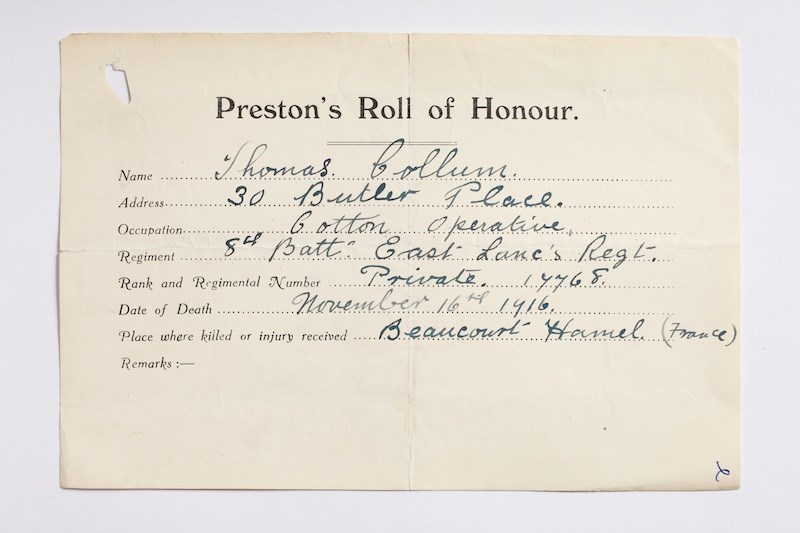 Preston's Roll of Honour.
Name Thomas. Collum.
Address 30 Butler Place.
Occupation Cotton Operative.
Regiment 8th Batt: East Lanc's Regt.
Rank and Regimental Number Private. 17768.
Date of Death November 16th 1916.
Place where killed or injury received Beaucourt Hamel. (France)
Remarks :—